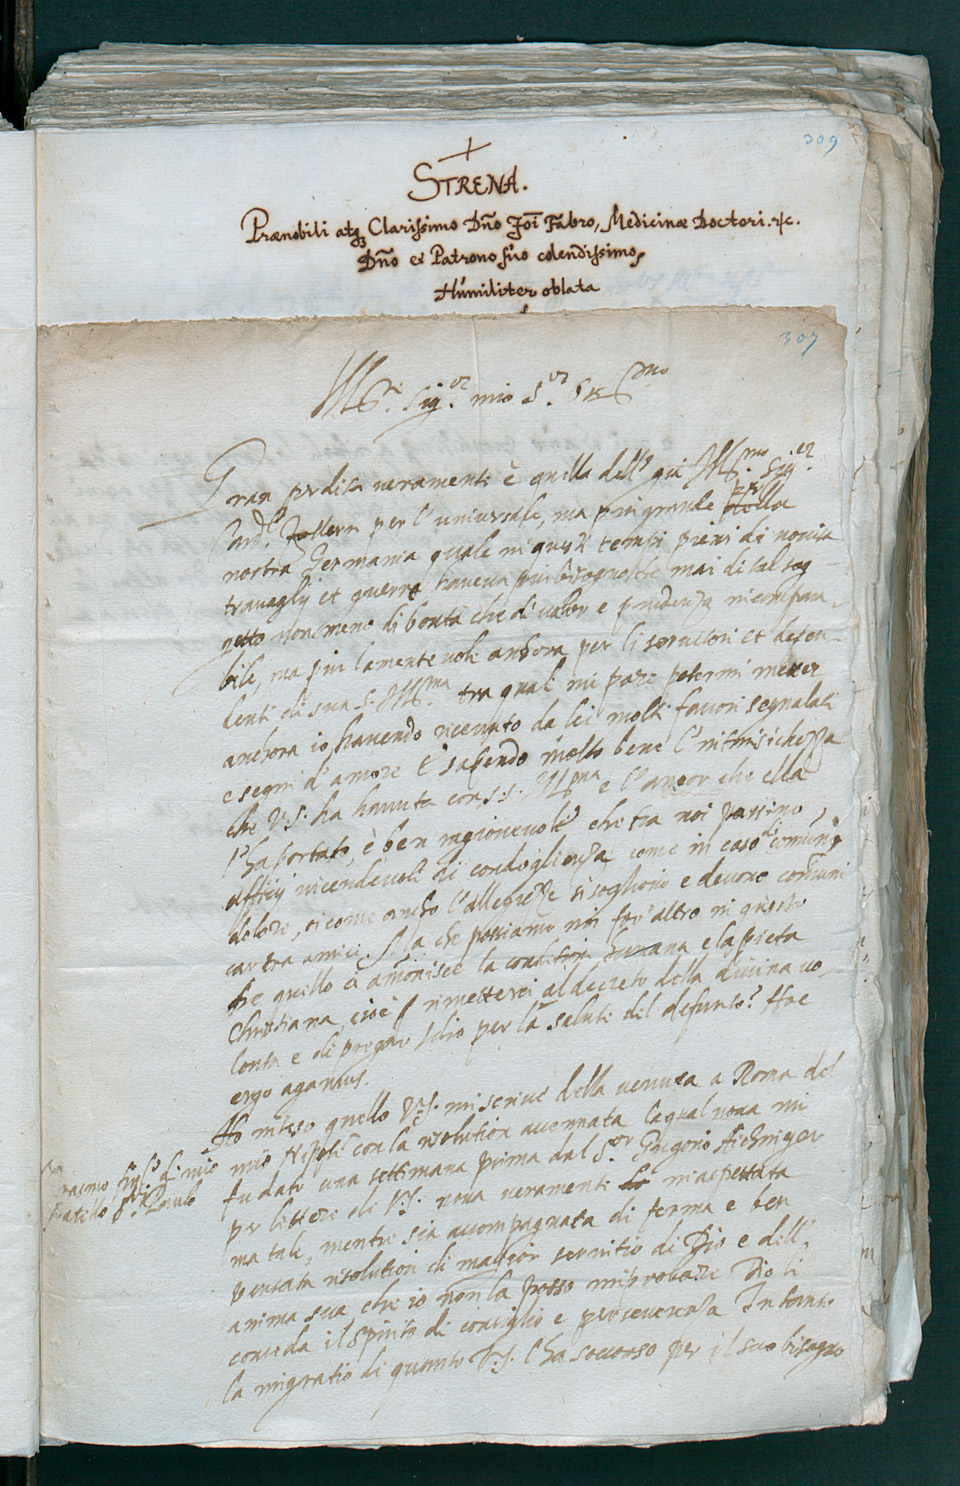 309
STRENA.
Prænobili atq3 Clarissimo Dño Joi Fabro, Medicinæ Doctori. &c.
Dño et Patrono suo colendissimo,
Humiliter oblata
307
Sig.or mio
Gran perdita veramente è quella dell' già Ill.mo Sig.or
Card.l Zollern per l'universale, ma più grande per la
nostra Germania quale in questi tempi pieni di
travagli et guerra haveva più bisogno che mai di tal sog-
getto non meno di bontà che di valor e prudenza incompara-
bile, ma più lamentevole anchora per li servitori et depen-
denti di sua S. Ill.ma tra quali mi pare potermi
anchora io, havendo ricevuto da lei molti favori segnalati
e segni d'amore e sapendo molto bene l'intrinsichezza
che V.S. ha havuta con S.S. Ill.ma e l'amor che ella
l'ha portato, è ben ragionevole che tra noi passino
uffitij vicendevoli di condoglienza, come in caso di comune
dolore, sicome anche l'allegrezze si sogliono e devono communi
car tra amici. Ma che possiamo noi far altro in questo
che quello ci amonisce la condition humana e la pietà
Christiana, cioè rimetterci al decreto della divina vo
lontà e di pregar Idio per la salute del defunto? Hoc
ergo agamus.
Ho inteso quello V.S. mi scrive della venuta a Roma del
mio Nipote con la resolution accennata la qual nova mi
fu data una settimana prima dal S.or Gregorio Aichinger
per lettere di V.S. nova veramente inaspettata
ma tale, mentre sia accompagnata di ferma e ben
pensata resolution di maggior servitio di Dio e dell'
anima sua che io non la posso improbare Dio li
conceda il spirito di consiglio e perseveranza Intanto
la ringratio di quanto V.S. l'ha soccorso per il suo bisogno
di mio
fratello Paulo